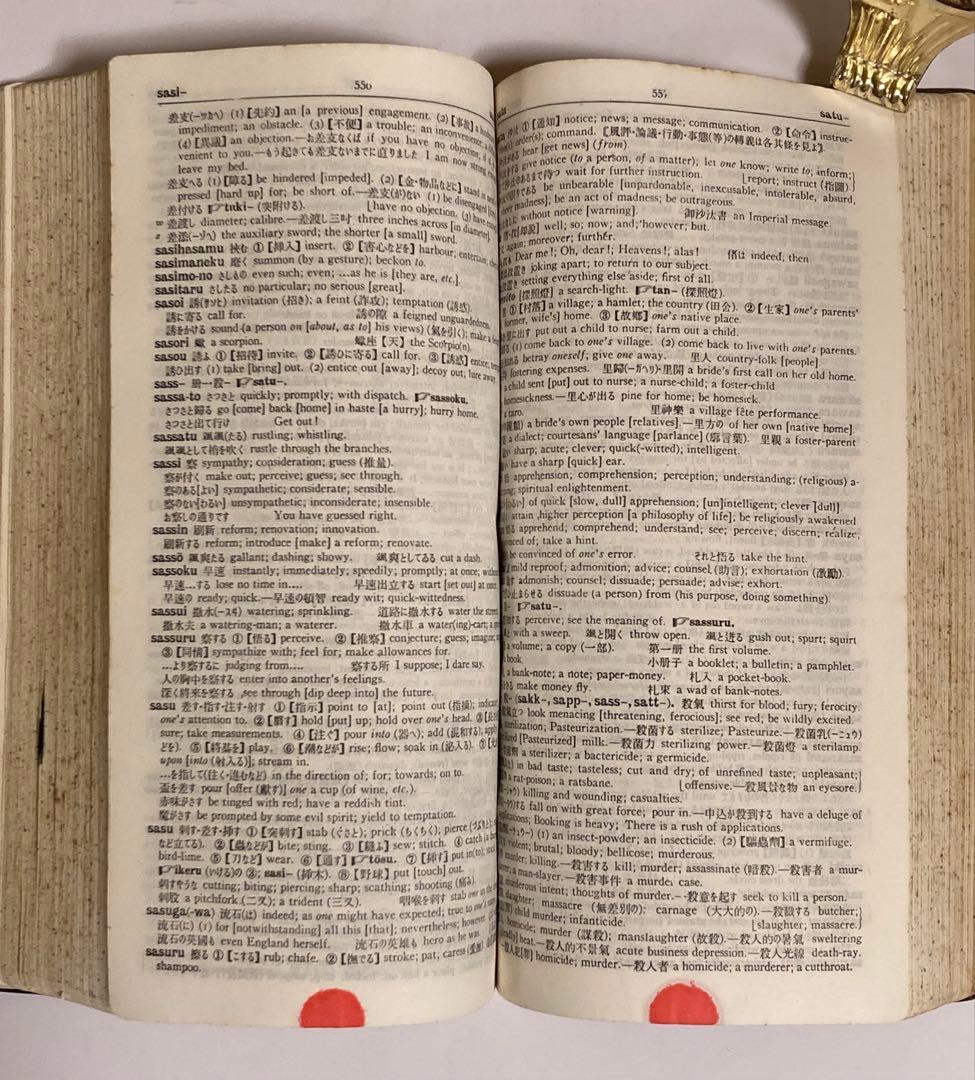 sasi–
550
差支(–ツカヘ) (1)【先約】an [a previous] engagement. (2)【事故】a
impediment; an obstacle. (3)【不便】a trouble; an inconvenience;
(4)【異議】an objection.—お差支なくば if you have no objection; if
venient to you.—もう起きても差支ないまでに直りました I am now strong
leave my bed.
差支へる (1)【障る】be hindered [impeded]. (2)【金・物品などに】stand in
pressed [hard up] for; be short of.—差支(が)ない (1) be disengaged
差付ける ☞tuki– (突附ける). ⌊have no objection. (3) have
差渡し diameter; calibre.—差渡し三吋 three inches across [in diameter].
差添(–ゾヘ) the auxiliary sword; the shorter [a small] sword.
sasihasamu 挾む ①【挿入】insert. ②【害心などを】harbour; entertain;
sasimaneku 麾く summon (by a gesture); beckon to.
sasimo-no さしもの even such; even; ...as he is [they are, etc.].
sasitaru さしたる no particular; no serious [great].
sasoi 誘(サソヒ) invitation (招き); a feint (詐攻); temptation (誘惑).
誘に寄る call for. 誘の隙 a feigned unguardedness.
誘をかける sound (a person on [about, as to] his views) (氣を引く); make a
sasori 蠍 a scorpion. 蠍座【天】the Scorpio(n).
sasou 誘ふ ①【招待】invite. ②【誘ひに寄る】call for. ③【誘惑】entice;
誘ひ出す (1) take [bring] out. (2) entice out [away]; decoy out; lure away
sass– 册–・殺– ☞satu–.
sassa-to さつさと quickly; promptly; with dispatch. ☞sassoku.
さつさと歸る go [come] back [home] in haste [a hurry]; hurry home.
さつさと出て行け Get out!
sassatu 颯颯(たる) rustling; whistling.
颯颯として梢を吹く rustle through the branches.
sassi 察 sympathy; consideration; guess (推量).
察が付く make out; perceive; guess; see through.
察のある[よい] sympathetic; considerate; sensible.
察のない[わるい] unsympathetic; inconsiderate; insensible.
お察しの通りです You have guessed right.
sassin 刷新 reform; renovation; innovation.
刷新する reform; introduce [make] a reform; renovate.
sassō 颯爽たる gallant; dashing; showy. 颯爽としてゐる cut a dash.
sassoku 早速 instantly; immediately; speedily; promptly; at once; without
早速...する lose no time in.... 早速出立する start [set out] at once.
早速の ready; quick.—早速の頓智 ready wit; quick-wittedness.
sassui 撒水(–スヰ) watering; sprinkling. 道路に撒水する water the
撒水夫 a watering-man; a waterer. 撒水車 a water(ing)-cart; a
sassuru 察する ①【悟る】perceive. ②【推察】conjecture; guess; imagine;
③【同情】sympathize with; feel for; make allowances for.
...より察するに judging from.... 察する所 I suppose; I dare say.
人の胸中を察する enter into another's feelings.
深く將來を察する see through [dip deep into] the future.
sasu 差す・指す・注す・射す ①【指示】point to [at]; point out (指摘); indicate
one's attention to. ②【翳す】hold [put] up; hold over one's head. ③
sure; take measurements. ④【注ぐ】pour into (器へ); add (混和する);
どを). ⑤【將棊を】play. ⑥【潮などが】rise; flow; soak in (泌入る). ⑦
upon [into (射入る)]; stream in.
...を指して(往く・進むなど) in the direction of; for; towards; on to.
盃を差す pour [offer (獻す)] one a cup (of wine, etc.).
赤味がさす be tinged with red; have a reddish tint.
魔がさす be prompted by some evil spirit; yield to temptation.
sasu 刺す・差す・挿す ①【突刺す】stab (ぐさと); prick (ちくちく); pierce
など立てる). ②【蟲などが】bite; sting. ③【縫ふ】sew; stitch. ④ catch
bird-lime. ⑤【刀など】wear. ⑥【通す】☞tōsu. ⑦【挿す】put in(to);
☞ikeru (いける) の ③; sasi– (挿木). ⑧【野球】put [touch] out.
刺すやうな cutting; biting; piercing; sharp; scathing; shooting (痛み).
刺股 a pitchfork (二叉); a trident (三叉). 咽喉を刺す stab one in the
sasuga(-wa) 流石(は) indeed; as one might have expected; true to one's
流石に (1) for [notwithstanding] all this [that]; nevertheless; however
流石の英國も even England herself. 流石の英雄も hero as he was.
sasuru 擦る ①【こする】rub; chafe. ②【撫でる】stroke; pat, caress (愛撫)
shampoo.
551
satu–
沙汰 ①【通知】notice; news; a message; communication. ②【命令】instruc-
order(s); command. 〖風評・論議・行動・事態(等)の轉義は各其條を見よ〗.
hear [get news] (from).
give notice (to a person, of a matter); let one know; write to; inform;
まで待つ wait for further instruction. ⌊report; instruct (指圖).
be unbearable [unpardonable, inexcusable, intolerable, absurd,
madness]; be an act of madness; be outrageous.
without notice [warning]. 御沙汰書 an Imperial message.
【却說】well; so; now; and; however; but.
again; moreover; further.
Dear me!; Oh, dear!; Heavens!; alas! 偖は indeed, then
放置き joking apart; to return to our subject.
放置き setting everything else aside; first of all.
[探照燈] a search-light. ☞tan– (探照燈).
里 ①【村落】a village; a hamlet; the country (田舍). ②【生家】one's parents'
former, wife's] home. ③【故鄕】one's native place.
里に出す put out a child to nurse; farm out a child.
(1) come back to one's village. (2) come back to live with one's parents.
betray oneself; give one away. 里人 country-folk [people].
fostering expenses. 里歸(–ガヘリ)・里開 a bride's first call on her old home.
a child sent [put] out to nurse; a nurse-child; a foster-child
homesickness.—里心が出る pine for home; be homesick.
a taro. 里神樂 a village fête performance.
a bride's own people [relatives].—里方の of her own [native home].
a dialect; courtesans' language [parlance] (廓言葉). 里親 a foster-parent
sharp; acute; clever; quick(-witted); intelligent.
have a sharp [quick] ear.
apprehension; comprehension; perception; understanding; (religious) a-
spiritual enlightenment.
of quick [slow, dull] apprehension; [un]intelligent; clever [dull].
attain higher perception [a philosophy of life]; be religiously awakened
apprehend; comprehend; understand; see; perceive, discern; realize,
of; take a hint.
be convinced of one's error. それと悟る take the hint.
mild reproof; admonition; advice; counsel (助言); exhortation (激勵).
admonish; counsel; dissuade; persuade; advise; exhort.
止まらせる dissuade (a person) from (his purpose, doing something).
☞satu–.
perceive; see the meaning of. ☞sassuru.
with a sweep. 颯と開く throw open. 颯と迸る gush out; spurt; squirt
a volume; a copy (一部). 第一册 the first volume.
book 小册子 a booklet; a bulletin; a pamphlet.
a bank-note; a note; paper-money. 札入 a pocket-book.
make money fly. 札束 a wad of bank-notes.
(sakk–, sapp–, sass–, satt–). 殺氣 thirst for blood; fury; ferocity.
殺氣立つ look menacing [threatening, ferocious]; see red; be wildly excited.
sterilization; Pasteurization.—殺菌する sterilize; Pasteurize.—殺菌乳(–ニュウ)
[Pasteurized] milk.—殺菌力 sterilizing power.—殺菌燈 a sterilamp.
a sterilizer; a bactericide; a germicide.
in bad taste; tasteless; cut and dry; of unrefined taste; unpleasant;
a rat-poison; a ratsbane. ⌊offensive.—殺風景な物 an eyesore.
killing and wounding; casualties.
fall on with great force; pour in.—申込が殺到する have a deluge of
applications; Booking is heavy; There is a rush of applications.
(1) an insect-powder; an insecticide. (2)【驅蟲劑】a vermifuge.
violent; brutal; bloody; bellicose; murderous.
murder; killing.—殺害する kill; murder; assassinate (暗殺).—殺害者 a mur-
a man-slayer.—殺害事件 a murder case.
murderous intent; thoughts of murder.—殺意を起す seek to kill a person.
slaughter; massacre (無差別の); carnage (大大的の).—殺戮する butcher;
child murder; infanticide. ⌊slaughter; massacre.
homicide; murder (謀殺); manslaughter (故殺).—殺人的の暑氣 sweltering
heat.—殺人的不景氣 acute business depression.—殺人光線 death-ray.
homicide; murder.—殺人者 a homicide; a murderer; a cutthroat.